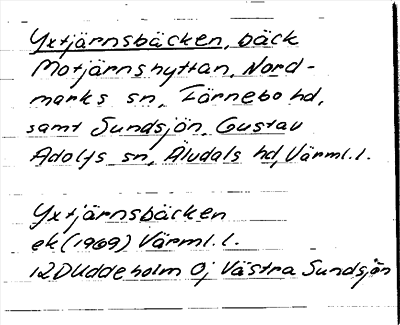 Yxtjärnsbäcken, bäck
Motjärnshyttan, Nord-
marks sn, Färnebo hd,
samt Sundsjön, Gustav
Adolfs sn, Äludals hd, Värml. l.
Yxtjärnsbäcken
ek (1969) Värml. l.
12D Uddeholm 0j Västra Sundsjön